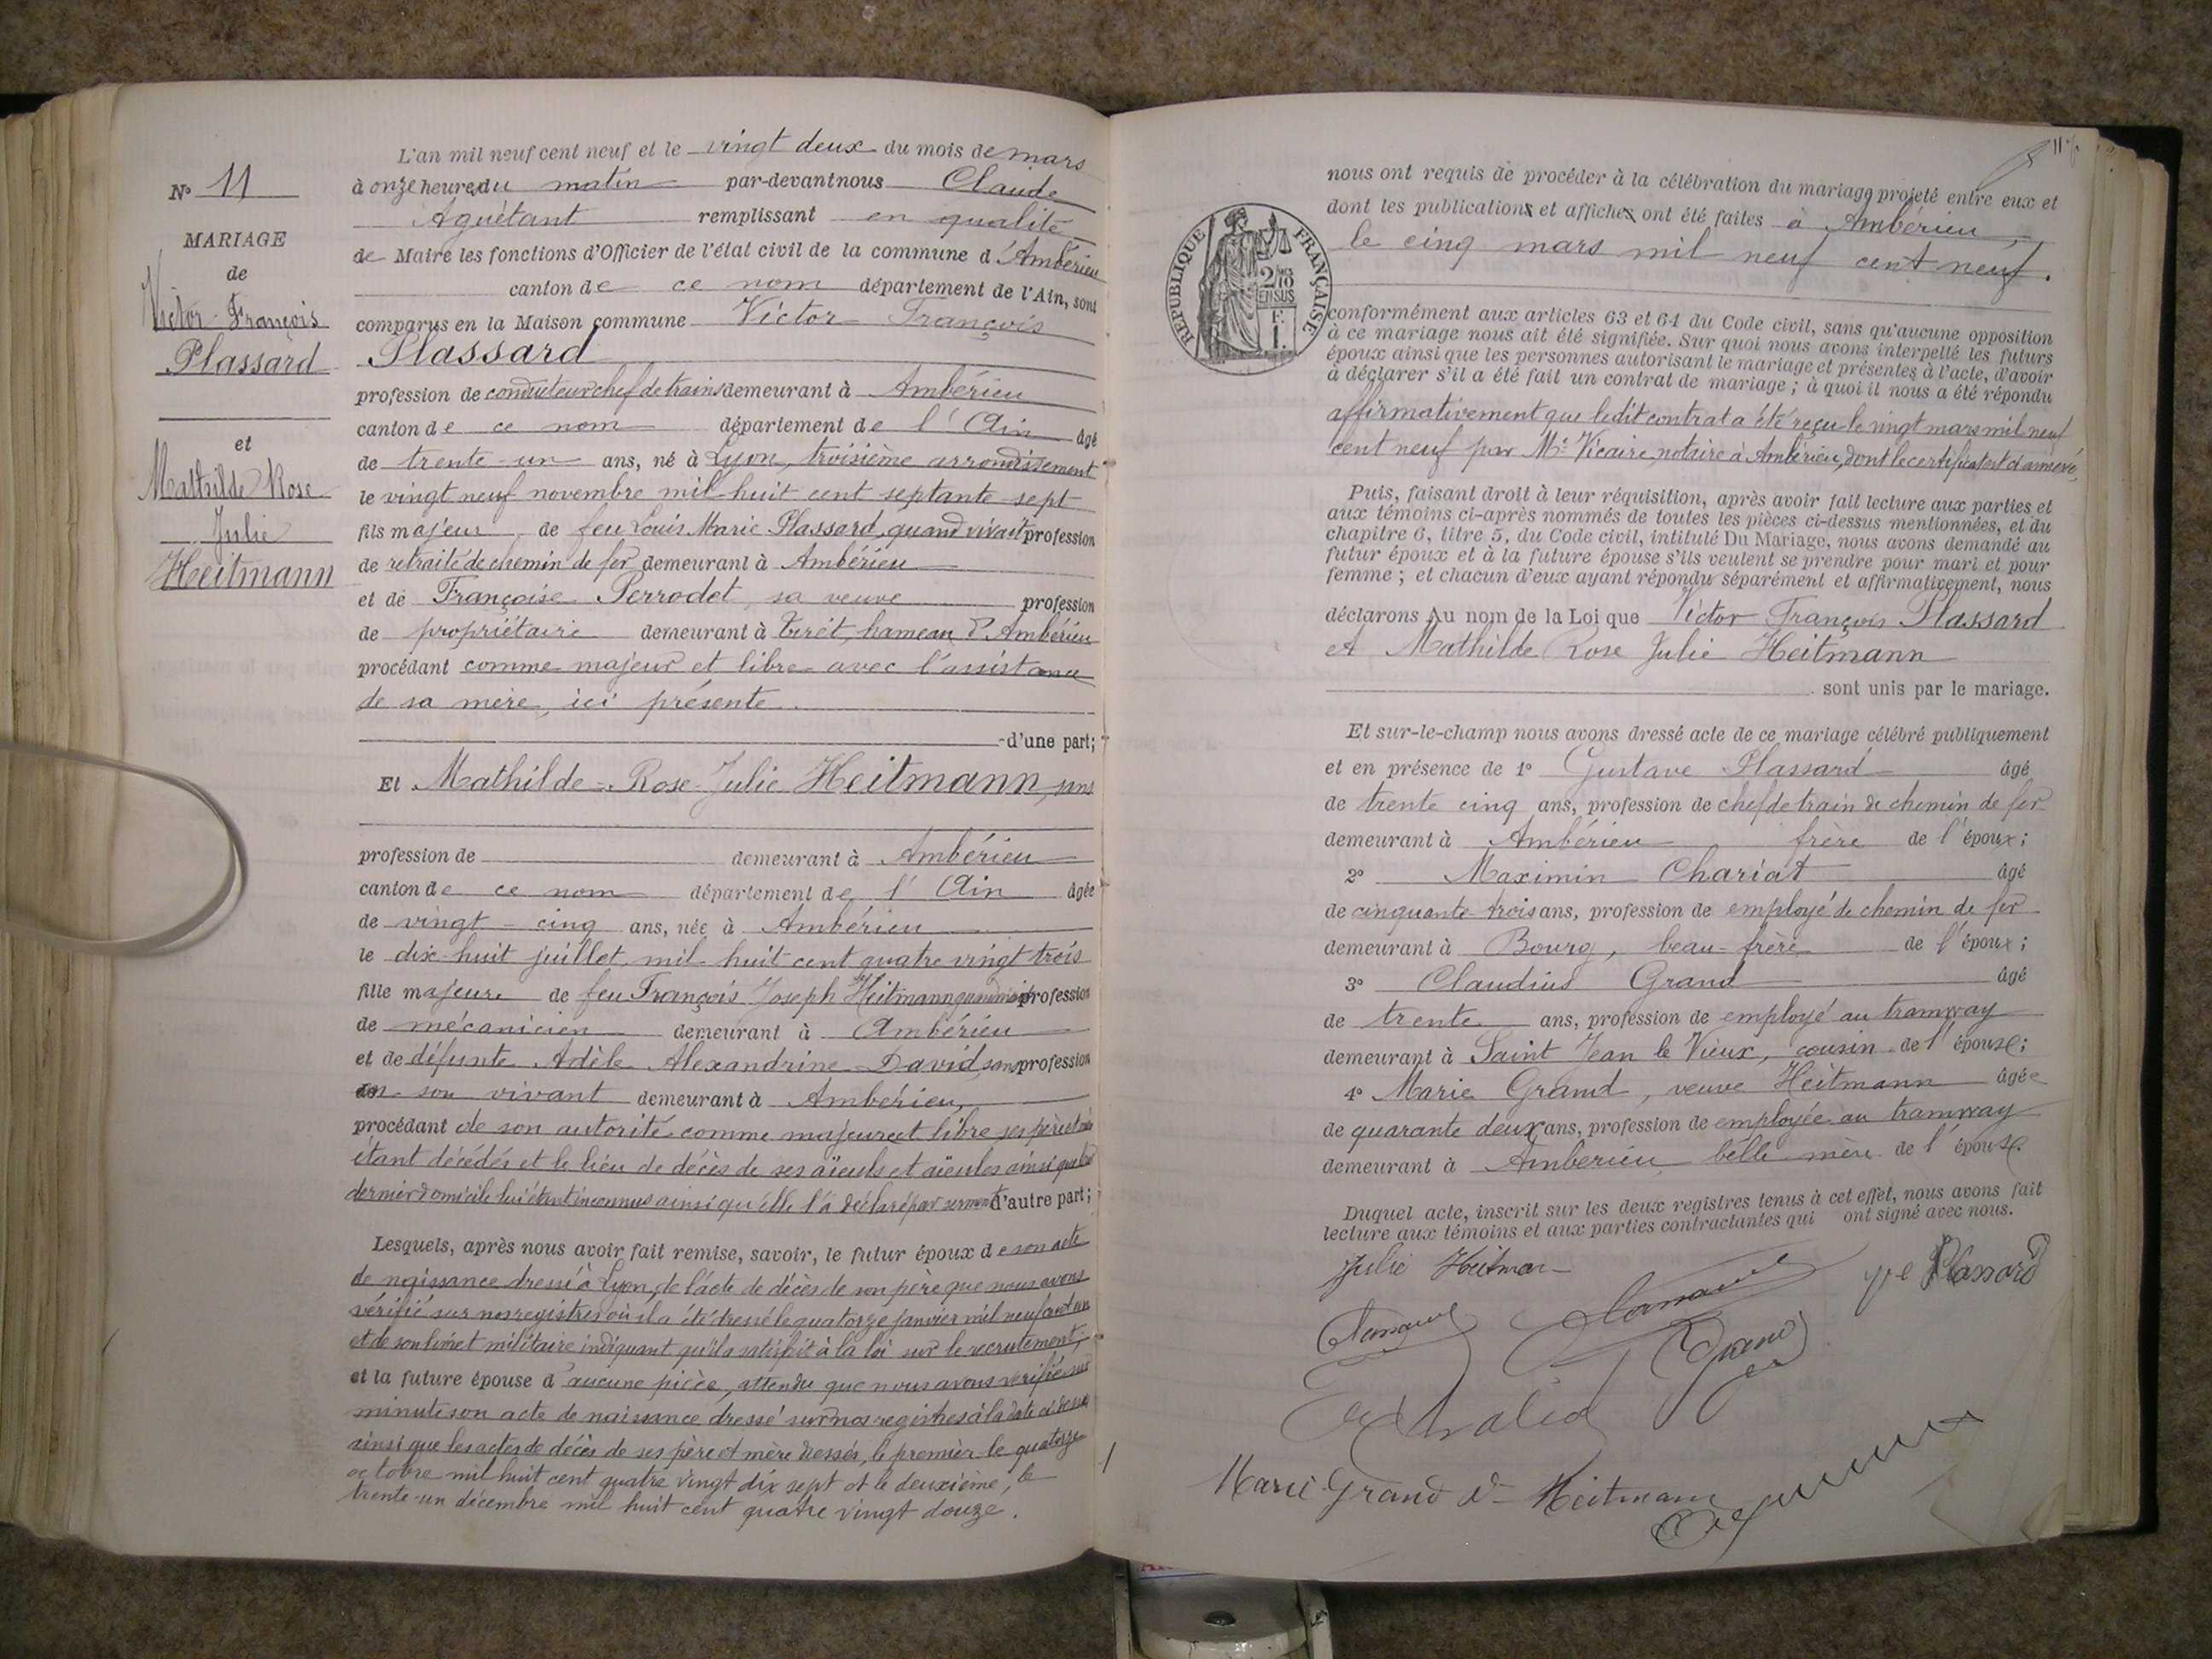 N° 11
MARIAGE
de
Victor François
Plassard
et
Mathilde Rose
Julie
Heitmann
L'an mil neuf cent neuf et le vingt deux du mois de mars
à onze heures du matin par-devant nous Claude
Aguétant remplissant en qualité
de Maire les fonctions d'Officier de l'état civil de la commune d'Ambérieu
canton de ce nom département de l'Ain, sont
comparus en la Maison commune Victor François
Plassard
profession de conducteur chef de trains demeurant à Ambérieu
canton de ce nom département de l'Ain âgé
de trente-un ans, né à Lyon, troisième arrondissement
le vingt neuf novembre mil huit cent septante sept
fils majeur de feu Louis Marie Plassard, quand vivait profession
de retraité de chemin de fer demeurant à Ambérieu
et de Françoise Perrodet, sa veuve profession
de propriétaire demeurant à Tiret, hameau d'Ambérieu
procédant comme majeur et libre avec l'assistance
de sa mère, ici présente.
d'une part;
Et Mathilde-Rose Julie Heitmann, sans
profession de demeurant à Ambérieu
canton de ce nom département de l'Ain âgée
de vingt-cinq ans, née à Ambérieu
le dix-huit juillet mil huit cent quatre vingt trois
fille majeure de feu François Joseph Heitmann quand vivait profession
de mécanicien demeurant à Ambérieu
et de défunte Adèle Alexandrine David, sans profession
en son vivant demeurant à Ambérieu,
procédant de son autorité comme majeure et libre ses père et mère
étant décédés et le lieu de décès de ses aïeuls et aïeules ainsi que leur
dernier domicile lui étant inconnus ainsi qu'elle l'a déclaré par serment d'autre part;
Lesquels, après nous avoir fait remise, savoir, le futur époux de son acte
de naissance dressé à Lyon, de l'acte de décès de son père que nous avons
vérifié sur nos registres où il a été dressé le quatorze janvier mil neuf cent un
et de son livret militaire indiquant qu'il a satisfait à la loi sur le recrutement;
et la future épouse d'aucune pièce, attendu que nous avons vérifié sur
minute son acte de naissance dressé sur nos registres à la date ci dessus
ainsi que les actes de décès de ses père et mère dressés, le premier le quatorze
octobre mil huit cent quatre vingt dix sept et le deuxième, le
trente-un décembre mil huit cent quatre vingt douze.
nous ont requis de procéder à la célébration du mariage projeté entre eux et
dont les publications et affiches ont été faites à Ambérieu,
le cinq mars mil neuf cent neuf.
RÉPUBLIQUE FRANÇAISE
conformément aux articles 63 et 64 du Code civil, sans qu'aucune opposition
à ce mariage nous ait été signifiée. Sur quoi nous avons interpellé les futurs
époux ainsi que les personnes autorisant le mariage et présentes à l'acte, d'avoir
à déclarer s'il a été fait un contrat de mariage; à quoi il nous a été répondu
affirmativement que ledit contrat a été reçu le vingt mars mil neuf
cent neuf par Me Vicaire, notaire à Ambérieu, dont le certificat est ci annexé
Puis, faisant droit à leur réquisition, après avoir fait lecture aux parties et
aux témoins ci-après nommés de toutes les pièces ci-dessus mentionnées, et du
chapitre 6, titre 5, du Code civil, intitulé Du Mariage, nous avons demandé au
futur époux et à la future épouse s'ils veulent se prendre pour mari et pour
femme; et chacun d'eux ayant répondu séparément et affirmativement, nous
déclarons Au nom de la Loi que Victor François Plassard
et Mathilde Rose Julie Heitmann
sont unis par le mariage.
Et sur-le-champ nous avons dressé acte de ce mariage célébré publiquement
et en présence de 1° Gustave Plassard âgé
de trente cinq ans, profession de chef de train de chemin de fer
demeurant à Ambérieu frère de l'époux;
2° Maximin Chariat âgé
de cinquante trois ans, profession de employé de chemin de fer
demeurant à Bourg, beau-frère de l'époux;
3° Claudius Grand âgé
de trente ans, profession de employé au tramway
demeurant à Saint Jean le Vieux, cousin de l'épouse;
4° Marie Grand, veuve Heitmann âgée
de quarante deux ans, profession de employée au tramway
demeurant à Ambérieu belle-mère de l'épouse.
Duquel acte, inscrit sur les deux registres tenus à cet effet, nous avons fait
lecture aux témoins et aux parties contractantes qui ont signé avec nous.
Julie Heitman
Plassard
Grand
Marie Grand Heitmann